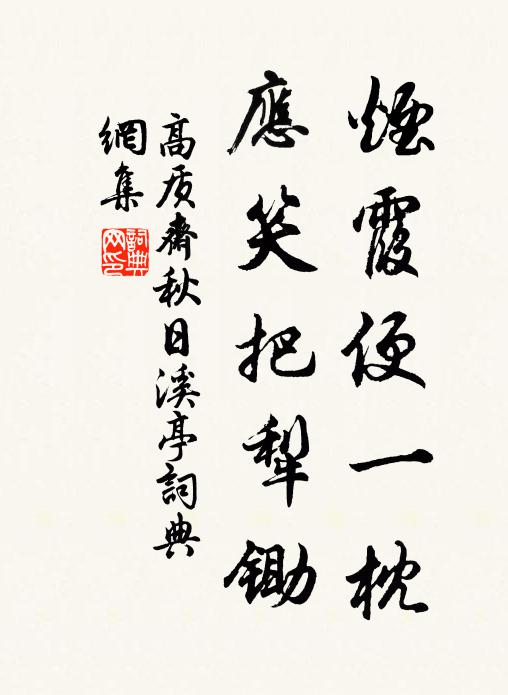 煙霞便一枕
應笑把犁鋤
高质齋秋日溪亭詞典
網集
詞典
网印